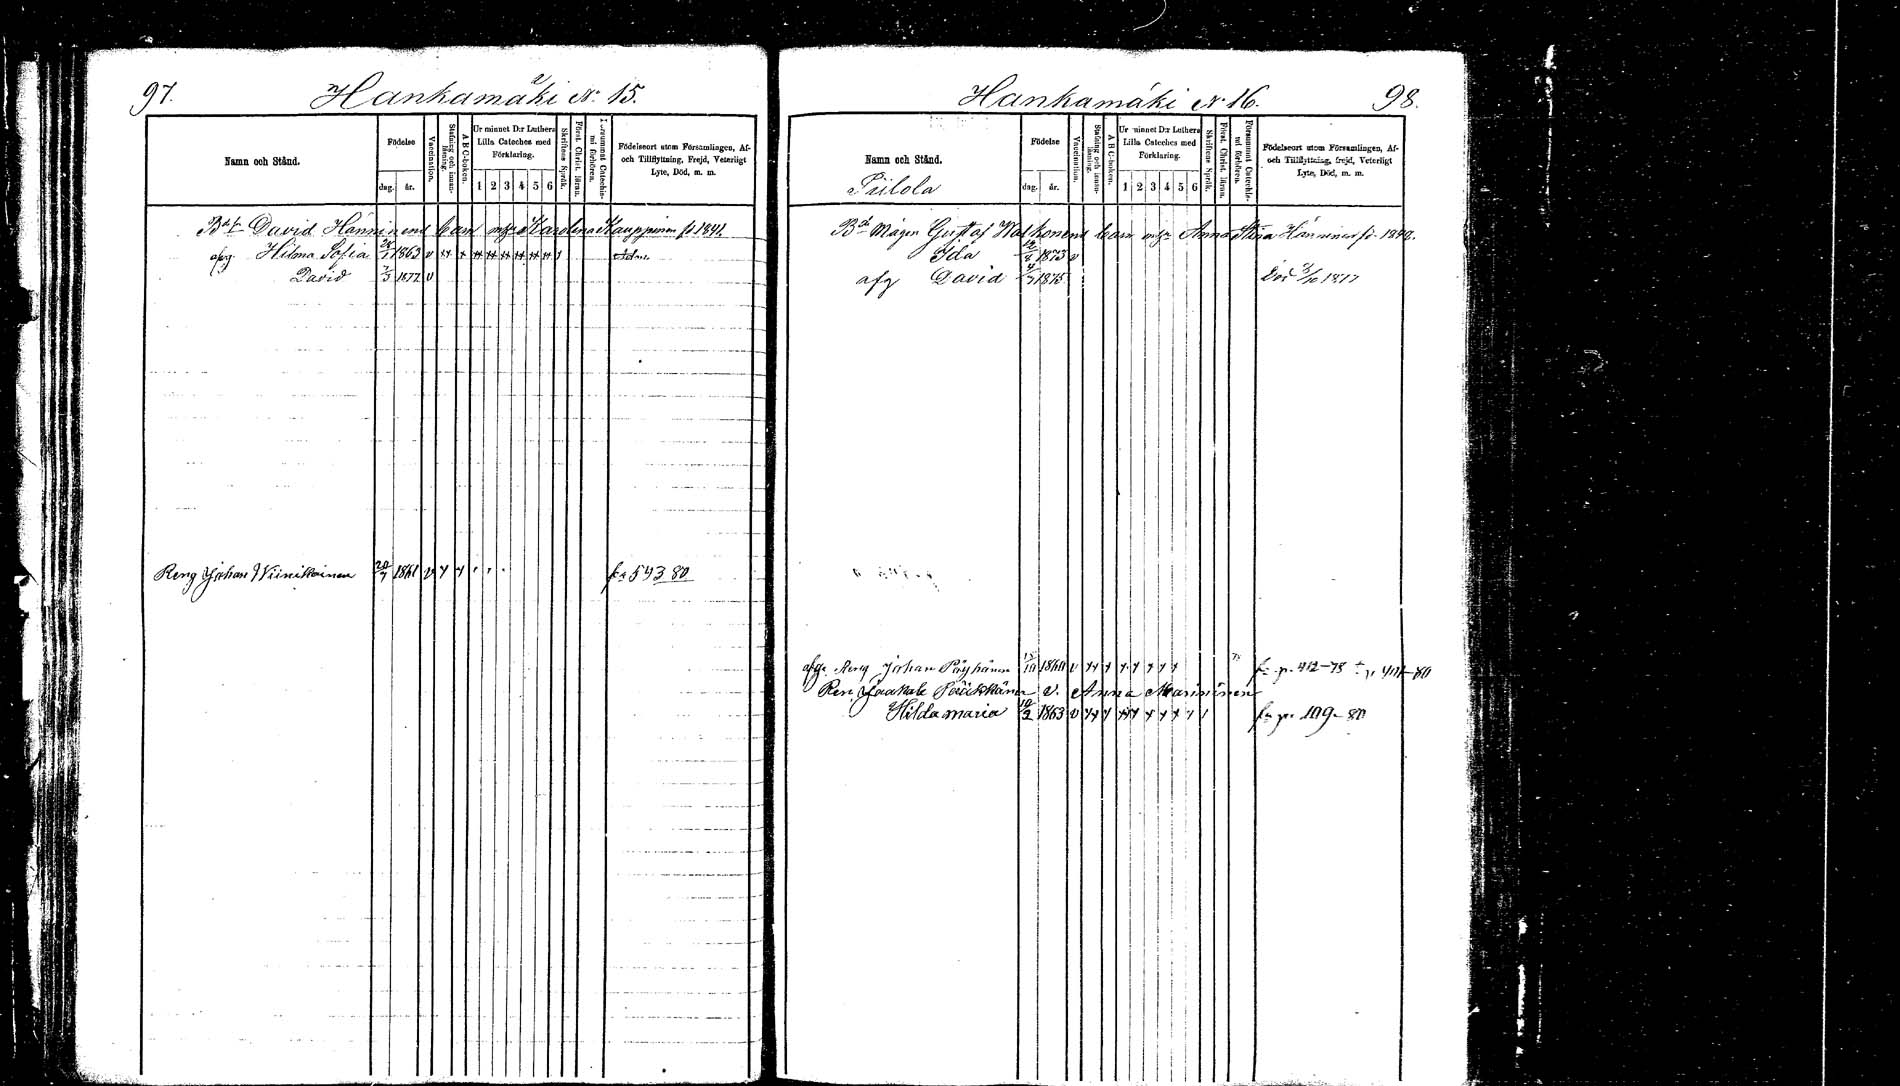 97.
Hankamäki No 15.
Namn och Stånd.
Födelse
dag. år.
Vaccination.
Stafning och innan-läsning.
A B C-boken.
Ur minnet D:r Luthers Lilla Cateches med Förklaring.
1 2 3 4 5 6
Skriftens Språk.
Först. Christ. läran.
Försummat Catechis-mi förhören.
Födelseort utom Församlingen, Af- och Tillflyttning, Frejd, Veterligt Lyte, Död, m. m.
David Hänninens barn Karolina Kauppinen f. 1841.
Hilma Sofia 1863 v
David 7/3 1877 v
Reng Johan Wiinikainen 20/7 1861 v 543 80
Hankamäki No 16.
98.
Namn och Stånd.
Piilola
Födelse
dag. år.
Vaccination.
Stafning och innan-läsning.
A B C-boken.
Ur minnet D:r Luthers Lilla Cateches med Förklaring.
1 2 3 4 5 6
Skriftens Språk.
Först. Christ. läran.
Försummat Catechis-mi förhören.
Födelseort utom Församlingen, Af- och Tillflyttning, frejd, Veterligt Lyte, Död, m. m.
Mågen Gustaf Walkonens barn Anna Stina Hänninen
Ida 1873 v
afg David 1875 Död 1877
Reng Johan Pöyhönen 1860 v p. 412-78
Jaakob Pääkkönen Anna Marininen
Hilda Maria 10/2 1863 v p. 109-80